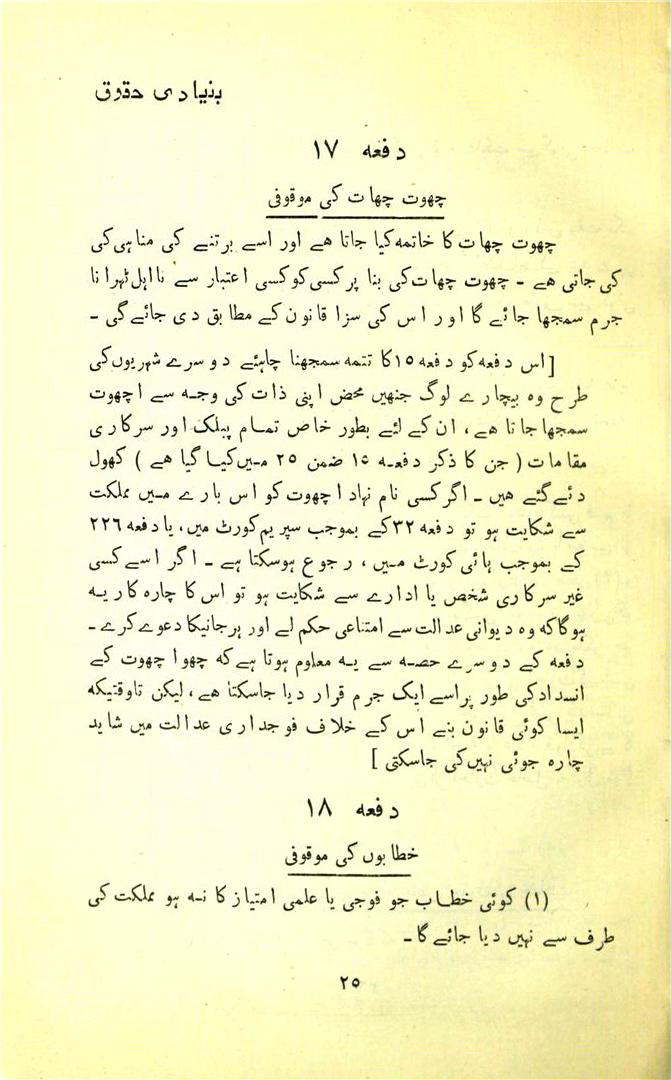 بنیادی حقوق
دفعہ ۱۷
چھوت چھات کی موقوفی
چھوت چھات کا خاتمہ کیا جاتا ھے اور اسے برتنے کی مناہی کی
کی جاتی ھے ۔ چھوت چھات کی بنا پر کسی کو کسی اعتبار سے نااہل ٹہرانا
جرم سمجھا جائے گا اور اس کی سزا قانون کے مطابق دی جائے گی ۔
[اس دفعہ کو دفعہ ۱۵ کا تتمہ سمجھنا چاہئے دوسرے شہریوں کی
طرح وہ بیچارے لوگ جنھیں محض اپنی ذات کی وجہ سے اچھوت
سمجھا جاتا ھے، ان کے لئے بطور خاص تمام پبلک اور سرکاری
مقامات ( جن کا ذکر دفعہ ۱۵ ضمن ۲۵ میں کیا گیا ھے ) کھول
دئے گئے ھیں ۔ اگر کسی نام نہاد اچھوت کو اس بارے میں مملکت
سے شکایت ہو تو دفعہ ۳۲ کے بموجب سپریم کورٹ میں، یا دفعہ ۲۲۶
کے بموجب ہائی کورٹ میں، رجوع ہوسکتا ہے ۔ اگر اسے کسی
غیر سرکاری شخص یا ادارے سے شکایت ہو تو اس کا چارہ کار یہ
ہوگا کہ وہ دیوانی عدالت سے امتناعی حکم لے اور ہرجانیکا دعوے کرے ۔
دفعہ کے دوسرے حصہ سے یہ معلوم ہوتا ہے کہ چھوا چھوت کے
انسداد کی طور پر اسے ایک جرم قرار دیا جاسکتا ھے، لیکن تاوقتیکہ
ایسا کوئی قانون بنے اس کے خلاف فوجداری عدالت میں شاید
چارہ جوئی نہیں کی جاسکتی ]
دفعہ ۱۸
خطابوں کی موقوفی
(۱) کوئی خطاب جو فوجی یا علمی امتیاز کا نہ ہو مملکت کی
طرف سے نہیں دیا جائے گا ۔
۲۵